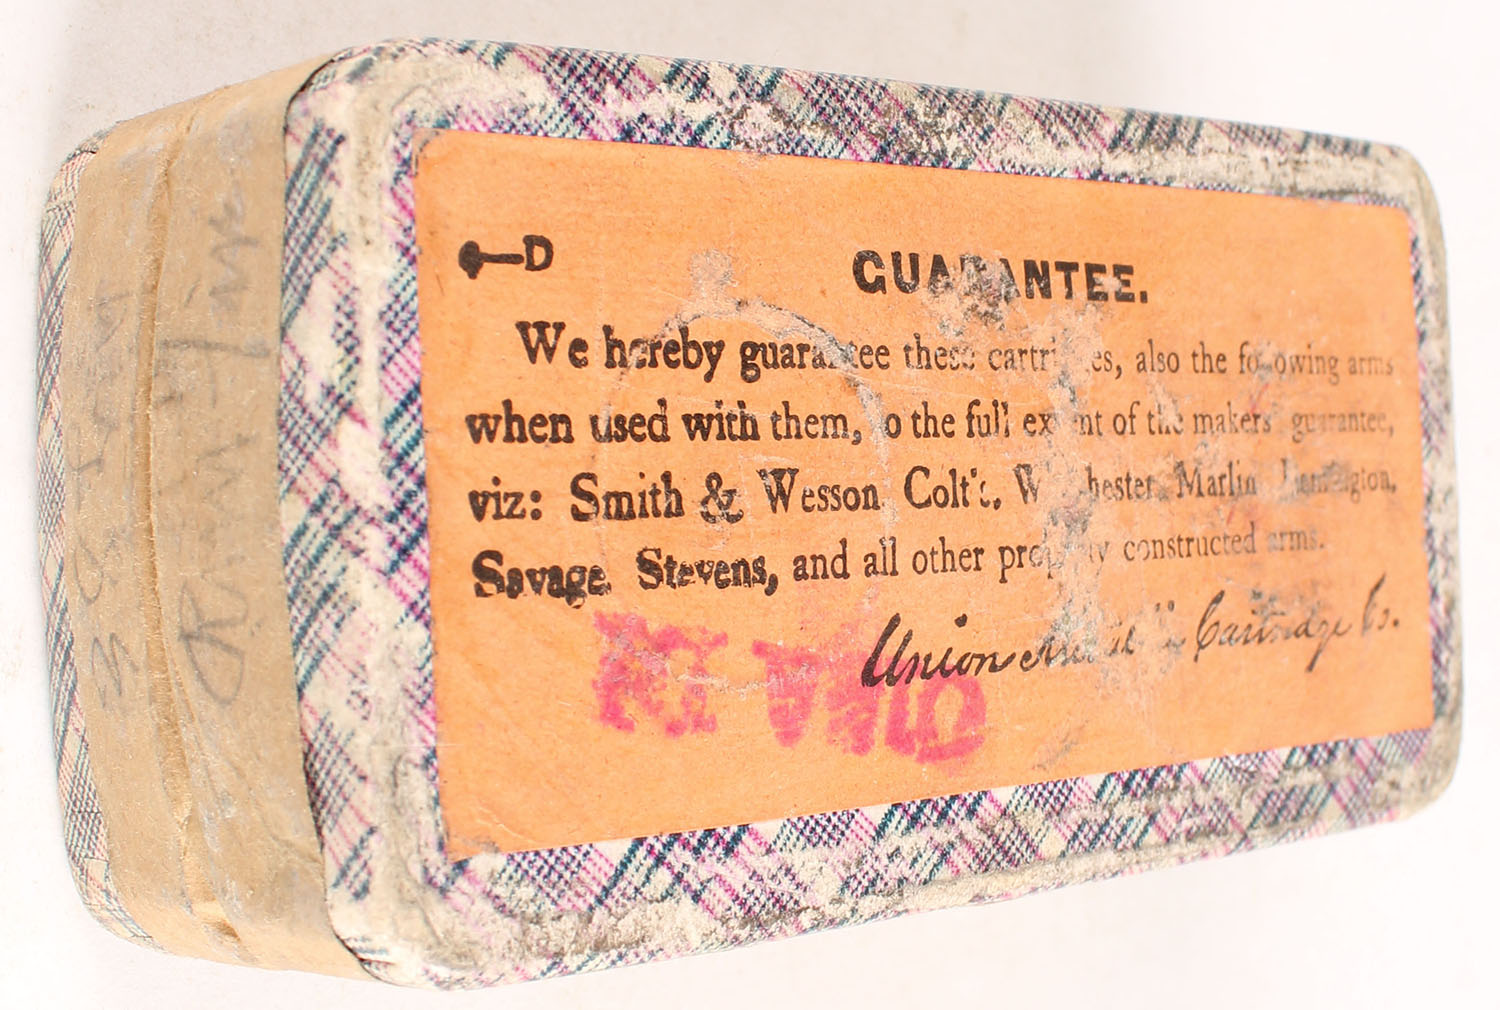 D
GUARANTEE.
We hereby guarantee these cartridges, also the following arms
when used with them, to the full extent of the makers' guarantee,
viz: Smith & Wesson, Colt's, Winchester, Marlin, Remington,
Savage, Stevens, and all other properly constructed arms.
Union Metallic Cartridge Co.